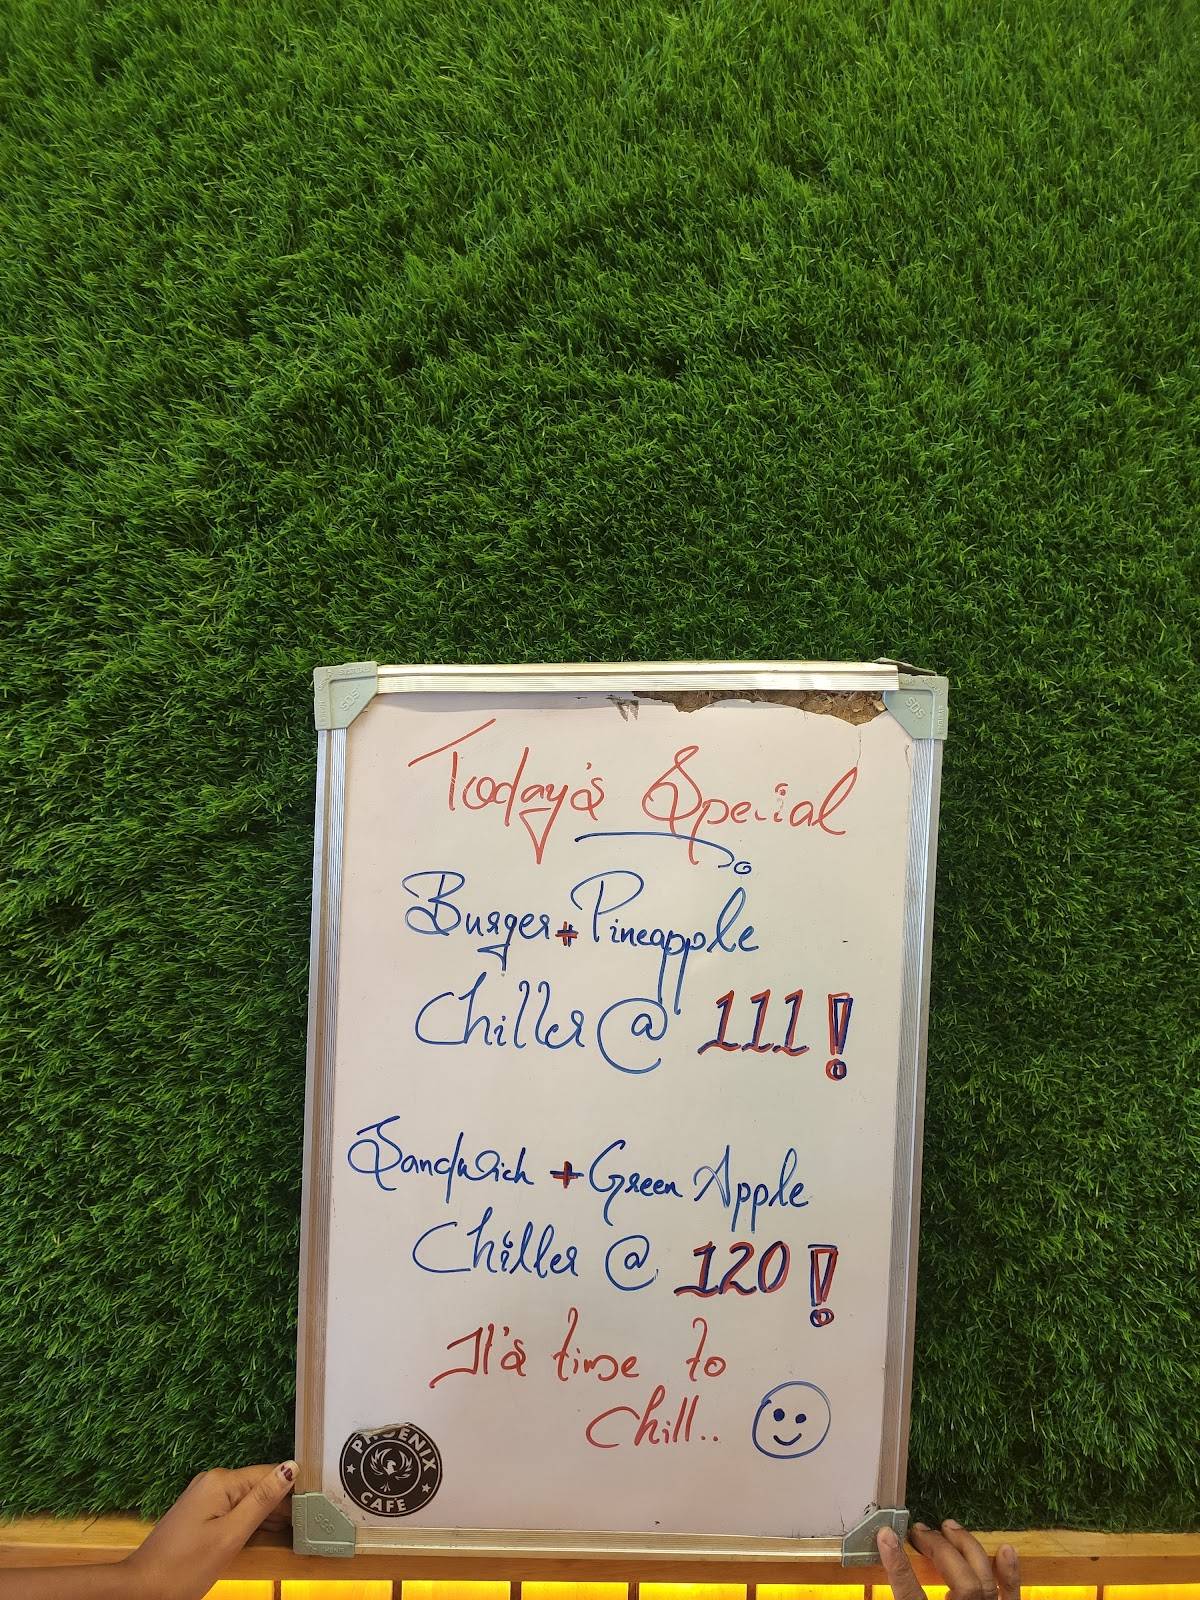 Today's Special
Burger + Pineapple
Chiller @ 111!
Sandwich + Green Apple
Chiller @ 120!
It's time to
Chill..
PHOENIX
CAFE